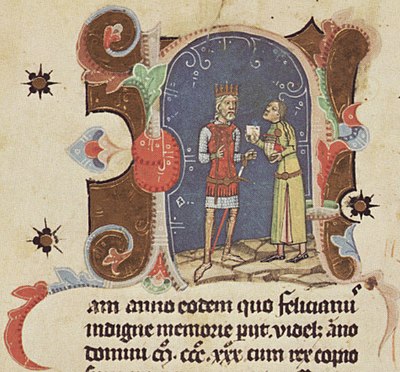 Nam anno eodem quo felicianꝰ
indigne memorie piit. videlꝫ āno
domini m̄. ccc̄. xxx. cum rex copio